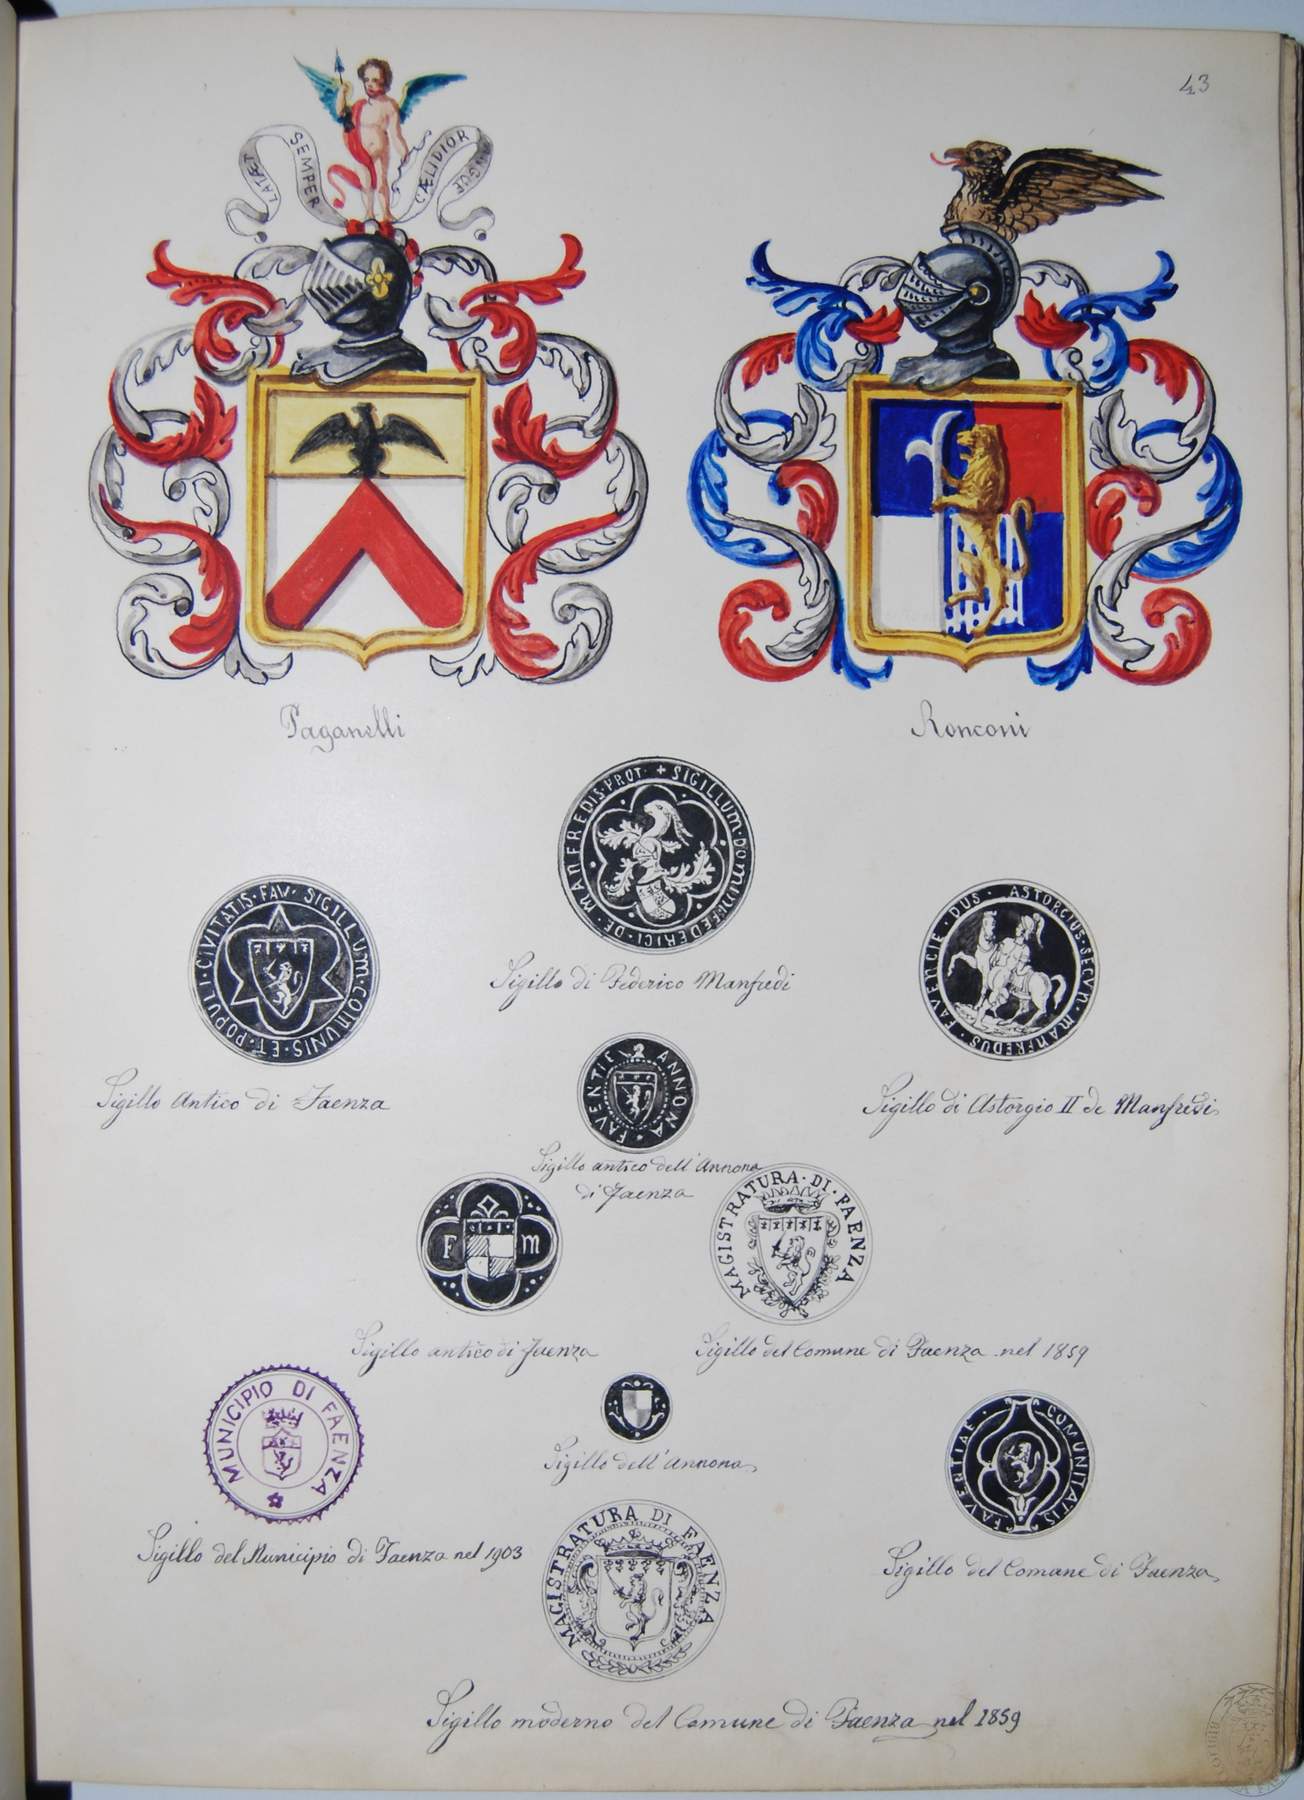 43
SEMPER
CÆLIDIOR
Paganelli
Ronconi
+ SIGILLUM · DOMINI · FEDERICI · DE · MANFREDIS · PROT ·
Sigillo di Federico Manfredi
SIGILLUM · COMUNIS · ET · POPULI · CIVITATIS · FAV ·
Sigillo Antico di Faenza
ASTORGIUS · SECVN · MANFREDUS · FAVENCIE · DUS ·
Sigillo di Astorgio II de Manfredi
FAVENTIE ANNONA
Sigillo antico dell'Annona
di Faenza
F M
Sigillo antico di Faenza
MAGISTRATURA · DI · FAENZA
Sigillo del Comune di Faenza nel 1859
MUNICIPIO DI FAENZA
Sigillo del Municipio di Faenza nel 1903
Sigillo dell'Annona
FAVENTIAE · COMUNITATIS
Sigillo del Comune di Faenza
MAGISTRATURA DI FAENZA
Sigillo moderno del Comune di Faenza nel 1859